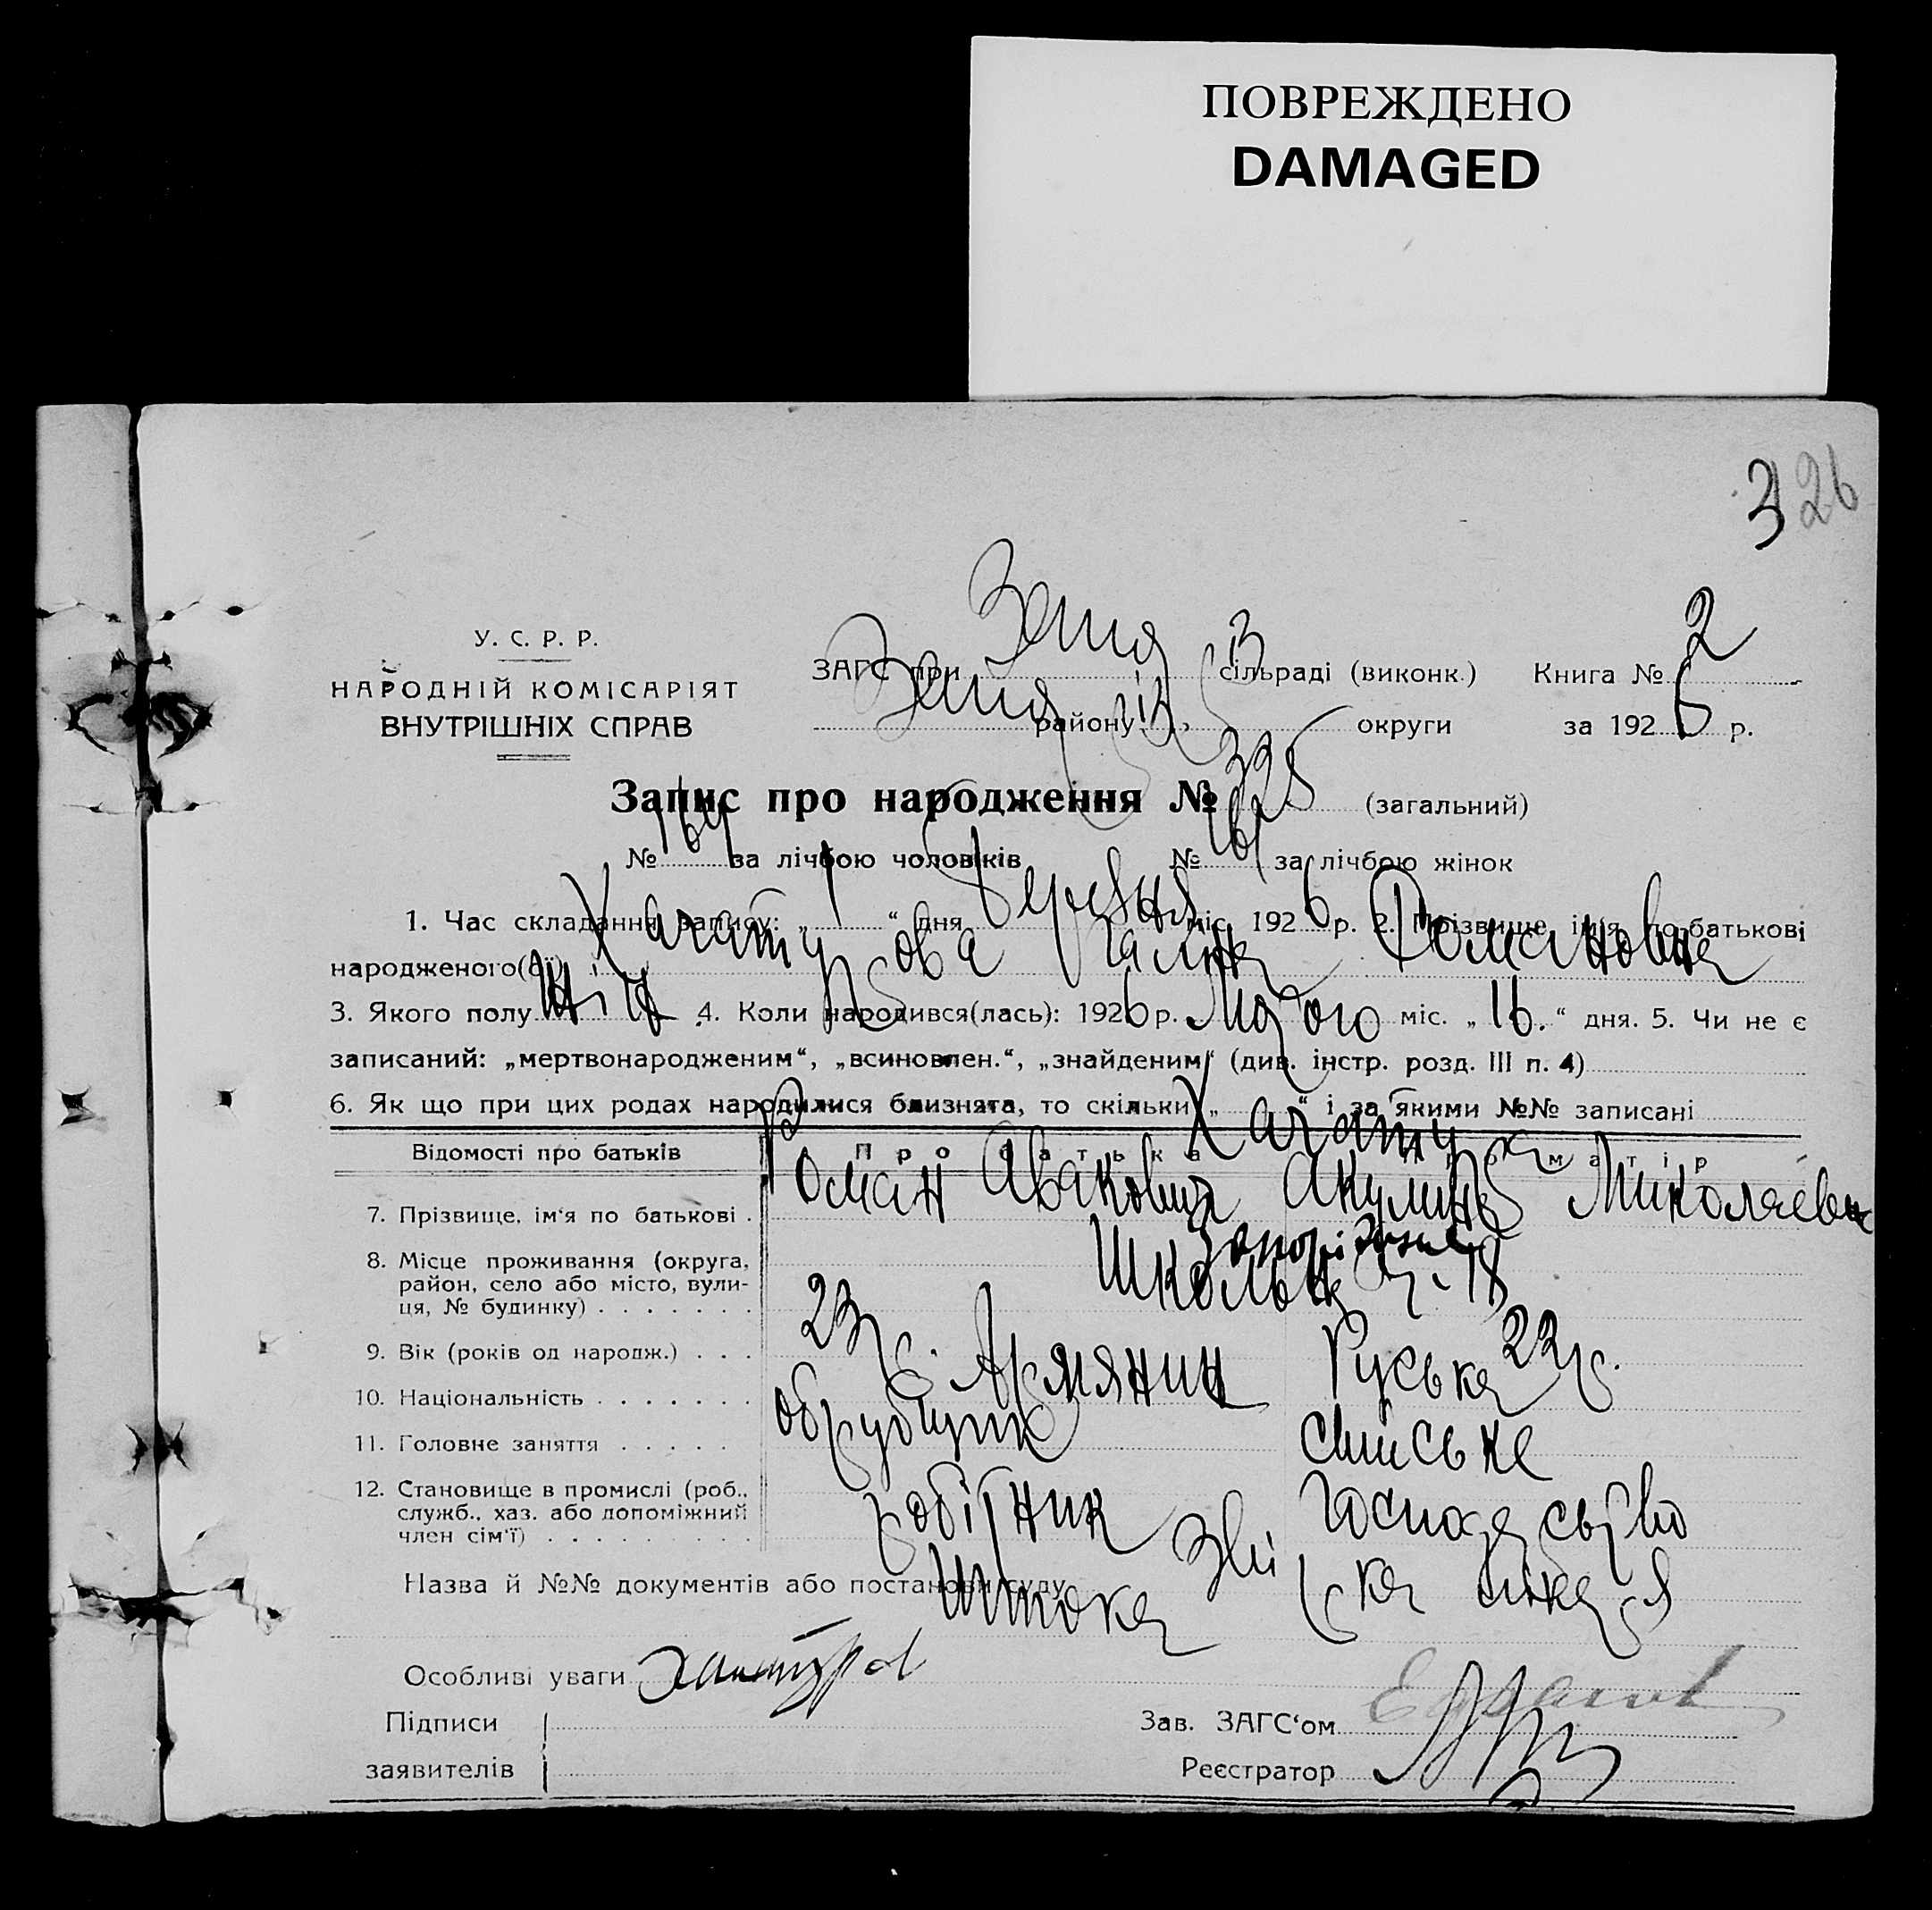 ПОВРЕЖДЕНО
DAMAGED
3 26
У. С. Р. Р.
НАРОДНІЙ КОМІСАРІЯТ
ВНУТРІШНІХ СПРАВ
ЗАГС при сільраді (виконк.) Книга № 2
району округи за 1926 р.
Запис про народження № 325 (загальний)
№ 164 за лічбою чоловіків № 161 за лічбою жінок
1. Час складання запису: „ 1 “ дня Березня міс. 1926 р. 2. Прізвище, ім'я, по-батькові
народженого(ої) Хачатурова Галина Романовна
3. Якого полу Жін 4. Коли народився(лась): 1926 р. Лютого міс. „ 16. “ дня. 5. Чи не є
записаний: „мертвонародженим“, „всиновлен.“, „знайденим“ (див. інстр. розд. III п. 4)
6. Як що при цих родах народилися близнята, то скільки „ “ і за якими №№ записані
Відомості про батьків Про батька Про матір
Хачатур
7. Прізвище, ім'я по батькові . Роман Авакович Акулина Миколаевна
8. Місце проживання (округа,
район, село або місто, вули-
ця, № будинку) . . . . . . . Запоріжжя Школьна 18
9. Вік (років од народж.) . . . 23 р. 22 р.
10. Національність . . . . . . . Армянин Руська
11. Головне заняття . . . . . обрубщик хатнє
12. Становище в промислі (роб.,
служб., хаз. або допоміжний
член сім'ї) . . . . . . . . . робітник господарство
Назва й №№ документів або постанови суду
Особливі уваги
Підписи
заявителів
Зав. ЗАГС'ом
Реєстратор